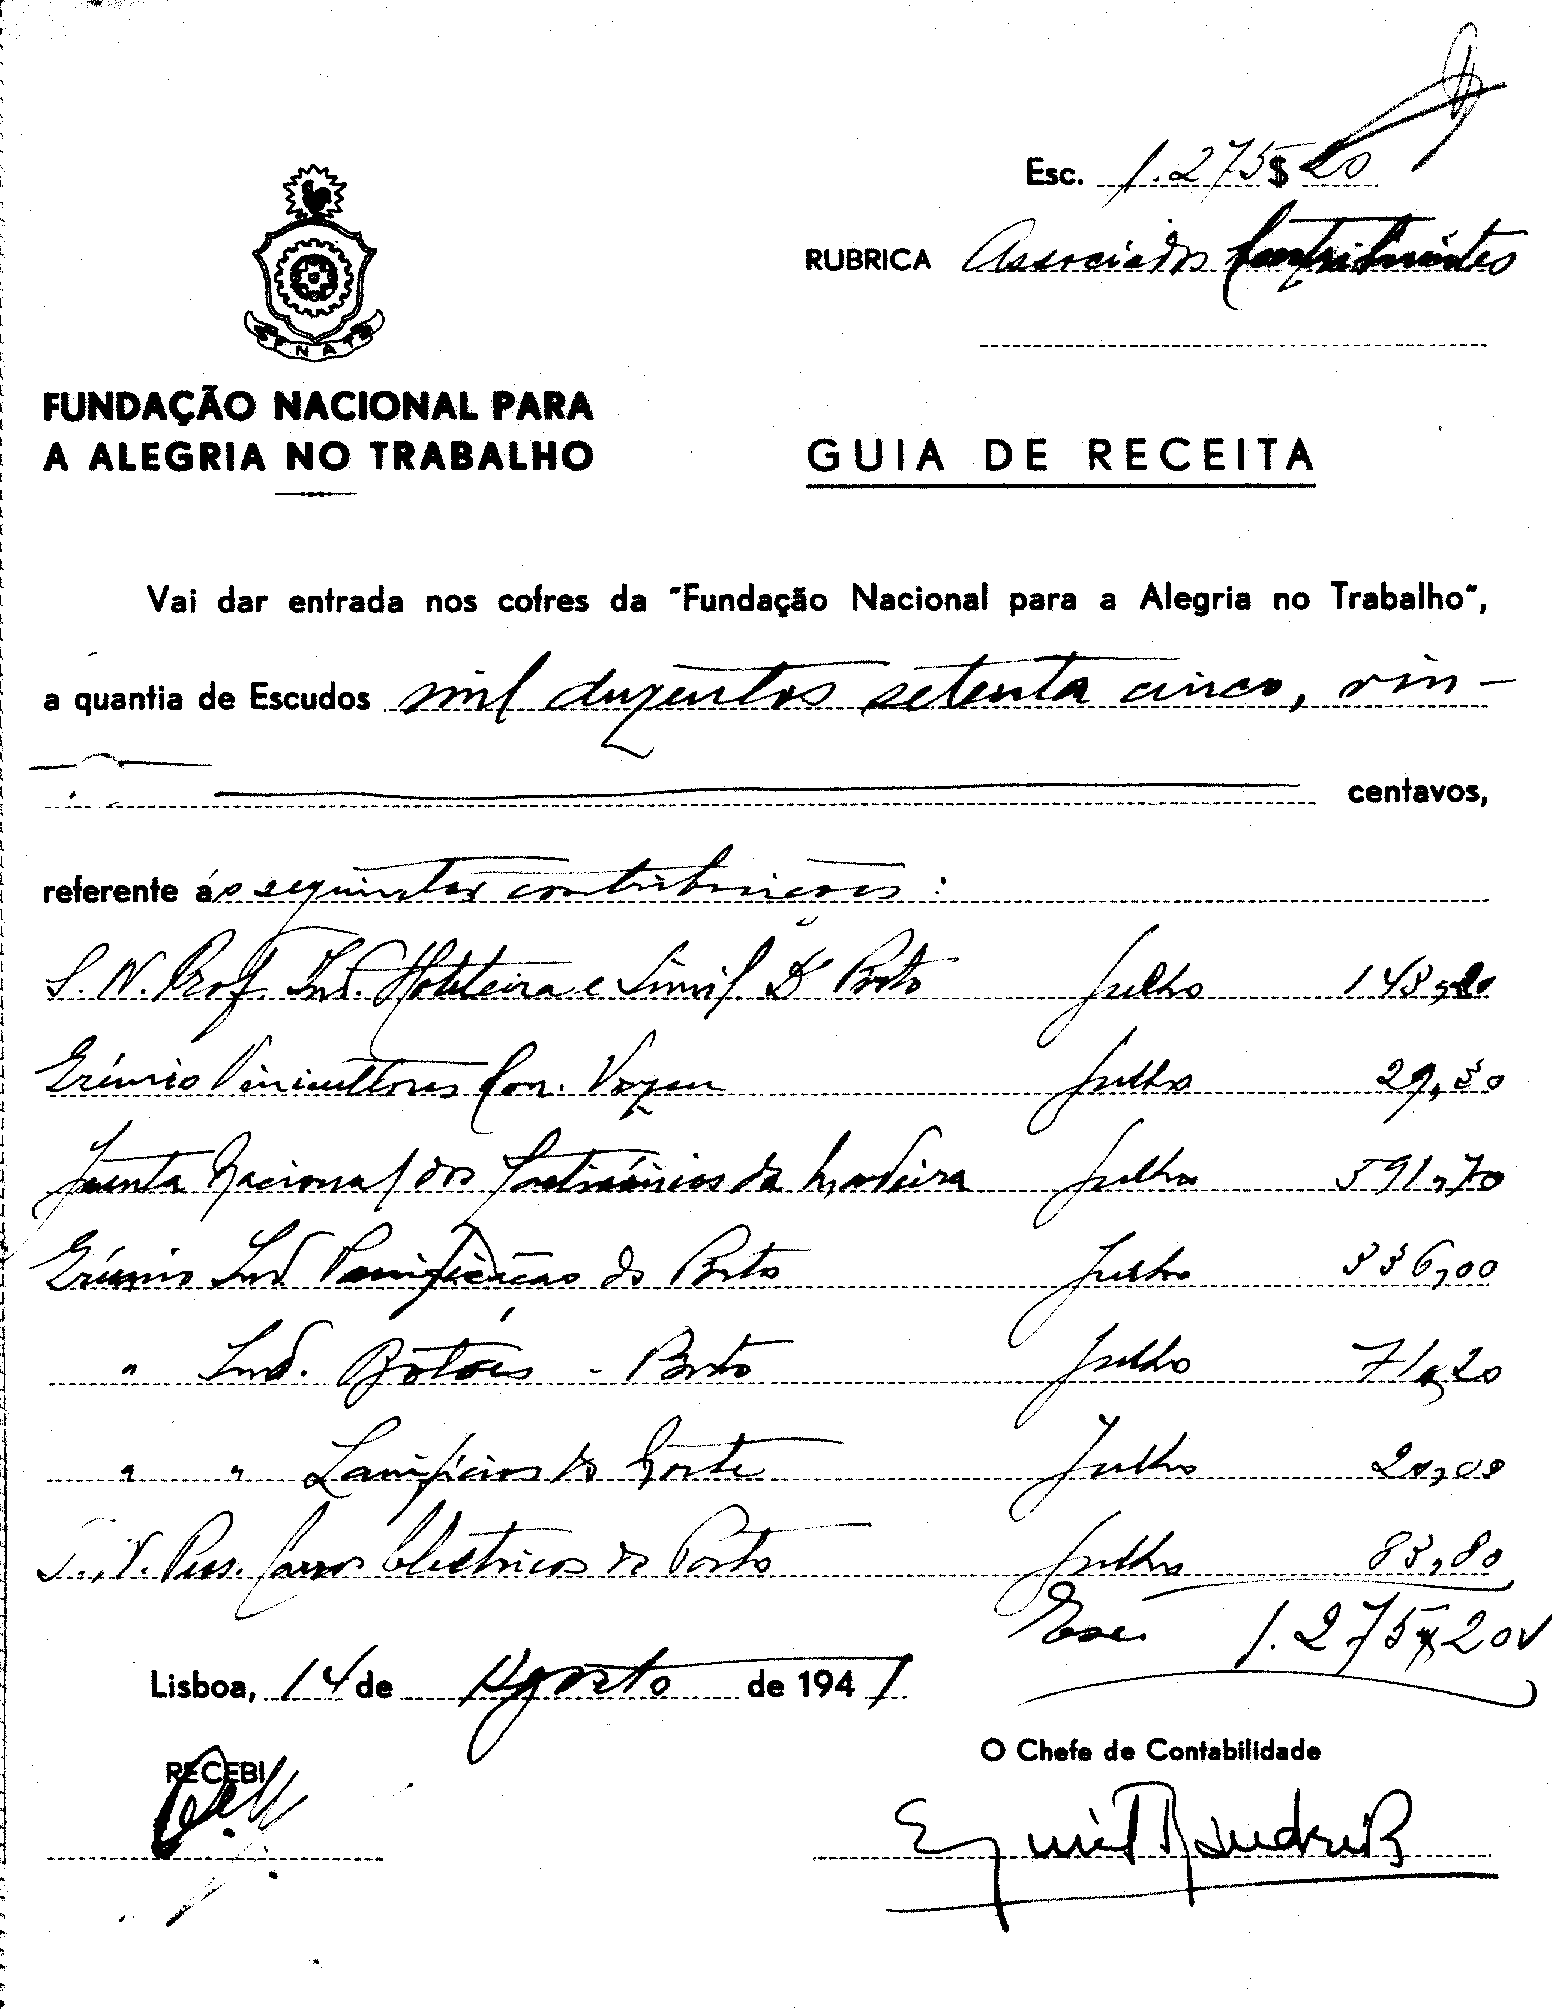 Esc. 1.275$20
RUBRICA Associados Contribuintes
FNAT
FUNDAÇÃO NACIONAL PARA
A ALEGRIA NO TRABALHO
GUIA DE RECEITA
Vai dar entrada nos cofres da "Fundação Nacional para a Alegria no Trabalho",
a quantia de Escudos mil duzentos setenta cinco, vin-
centavos,
referente ás seguintes contribuições:
S. N. Prof. Ind. Hoteleira e Simil. D. Porto Julho 143,20
Grémio Vinicultores Con. Julho 29,30
Junta Nacional dos da Madeira Julho 591,70
Grémio Ind Panificação do Porto Julho 336,00
" Ind. Botões - Porto Julho 71,20
" " Lanifícios do Norte Julho 20,00
S. N. Pess. Carros Electricos do Porto Julho 83,80
Esc. 1.275$20
Lisboa, 14 de Agosto de 1941
RECEBI
O Chefe de Contabilidade